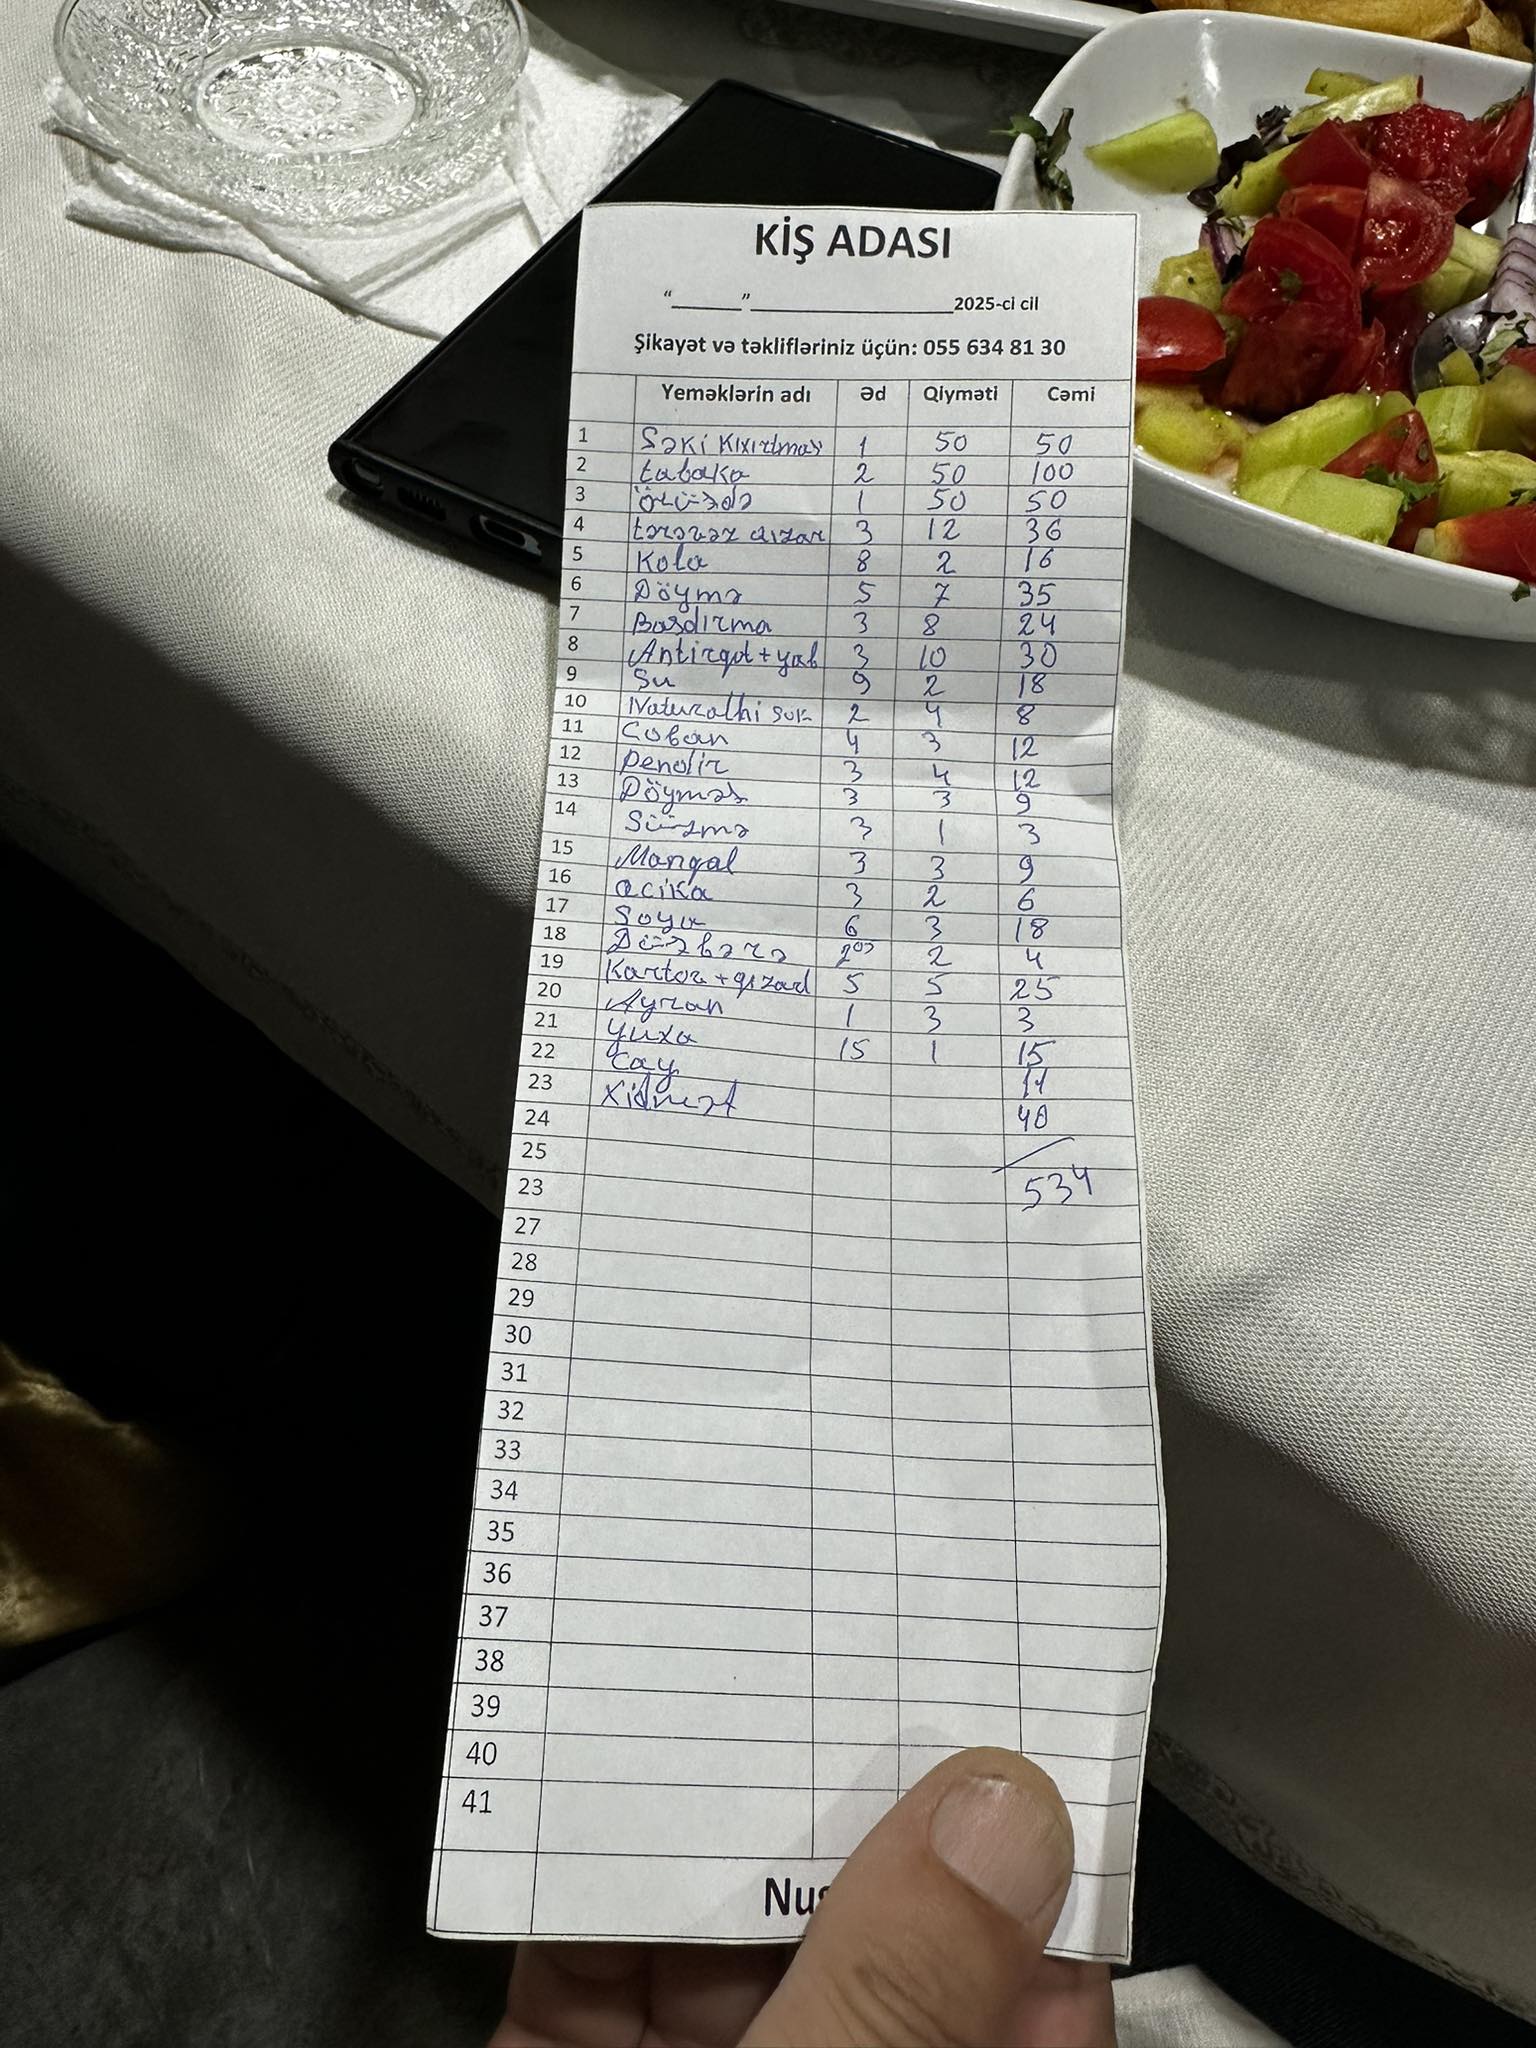 KİŞ ADASI
“______”____________________2025-ci cil
Şikayət və təklifləriniz üçün: 055 634 81 30
Yeməklərin adı Əd Qiyməti Cəmi
1 Səki Kıxırtmas 1 50 50
2 tabaka 2 50 100
3 1 50 50
4 tərəvəz qızar 3 12 36
5 Kola 8 2 16
6 Döymə 5 7 35
7 Basdırma 3 8 24
8 Antirqot + yab 3 10 30
9 Su 9 2 18
10 Naturalni sok 2 4 8
11 Coban 4 3 12
12 Pendir 3 4 12
13 Döyməs 3 3 9
14 Süzmə 3 1 3
15 Manqal 3 3 9
16 acika 3 2 6
17 Soya 6 3 18
18 Düzbərə 2 4
19 Kartoz + qızard 5 5 25
20 Ayran 1 3 3
21 Yuxa 15 1 15
22 Cay 11
23 Xidmət 40
24
25
23 534
27
28
29
30
31
32
33
34
35
36
37
38
39
40
41